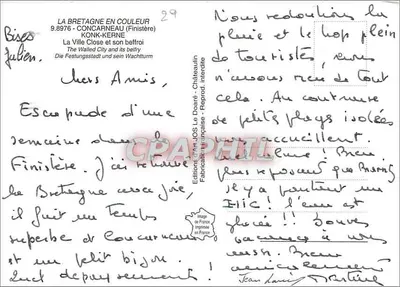 29
LA BRETAGNE EN COULEUR
9.8976 - CONCARNEAU (Finistère)
KONK-KERNE
La Ville Close et son beffroi
The Walled City and its belfry
Die Festungsstadt und sein Wachtturm
Julien.
Chers Amis,
Escapade d'une
semaine dans le
Finistère. J'ai retrouvé
la Bretagne
il fait un temps
superbe et Concarneau
est un petit bijou.
Quel depaysement !
Editions JOS Le Doaré - Châteaulin
Fabrication Française - Reprod. interdite
CRAPHTI
image
de France
imprimée
en France
Nous redoutions la
pluie et le trop plein
de touristes, nous
n'avons rien de tout
cela. Au contraire
de petits plages isolées
accueillent
même ! Bien
plus reposant que
il y a pourtant un
HIC ! l'eau est
glacée !! Bonnes
vacances à vous
aussi. Bien
amicalement